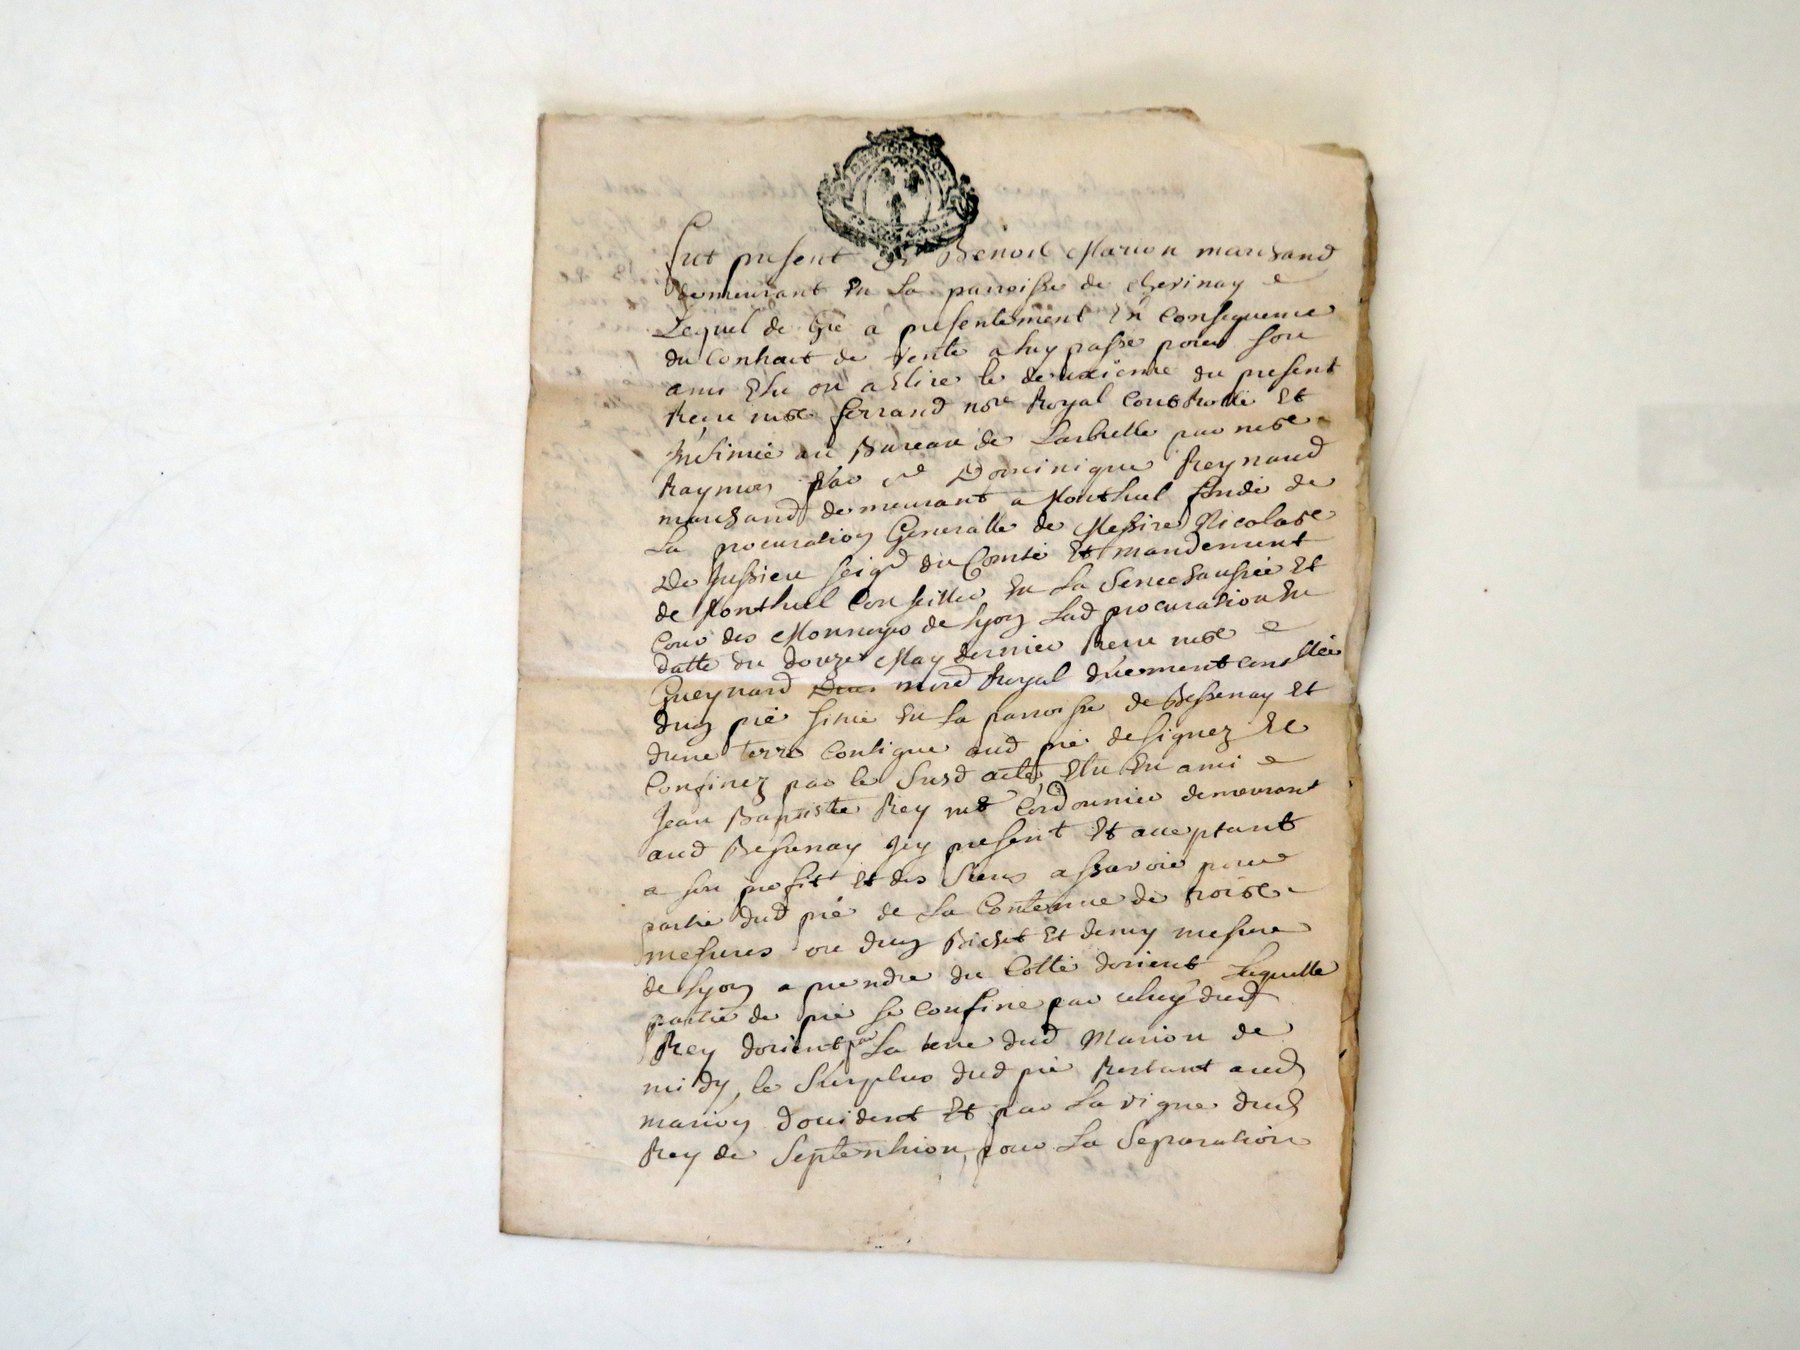 Fut present Sr Benoit Marion marchand
demeurant En La parroisse de chevinay
Lequel de Gré a presentement En Consequence
du Contract de Vente a luy passé pour son
ami Elu ou a Elire le deuxieme du present
Reçu me ferrand nore Royal Controllé Et
Insinué au Bureau de Larbrelle par me
Raymon Par Sr Dominique Reynaud
marchand demeurant a Montluel fondé de
La procuration Generalle de Messire Nicolas
De Jussieu seigr du Comté Et mandement
de Montluel Conseiller En La Senechaussée Et
Cour des Monnoyes de Lyon Lad procuration En
datte du douze May dernier Reçue me
Gueynard Royal düement
dun pré situé En La parroisse de Bessenay Et
dune Terre Contigue aud pré designez Et
Confinez par le Susd acte, Elu En ami
Jean Baptiste Rey me Cordonnier demeurant
aud Bessenay Icy present Et acceptant
a son profit Et des Siens assavoir pour
partie dud pré de La Contenue de trois
mesures ou dun Bichet Et demy mesure
de Lyon a prendre du Cotté dorient Laquelle
partie de pré se Confine par celuy dud
Rey dorient par La terre dud Marion de
midy, le Surplus dud pré Restant aud
marion doccident Et par La vigne dud
Rey de Septentrion, pour La Separation